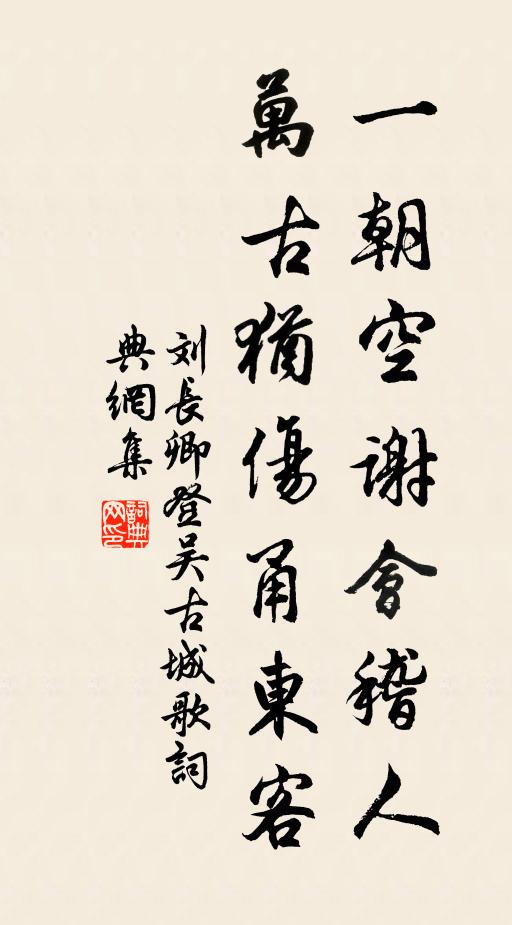 一朝空謝會稽人
萬古猶傷甬東客
刘長卿登吴古城歌詞
典網集
詞典
网印